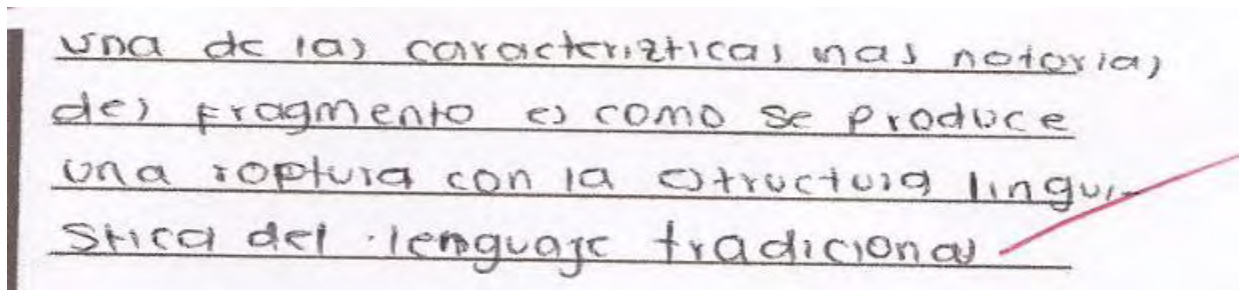 una de las caracterizticas mas notorias
del fragmento es como se produce
una roptura con la estructura lingui-
stica del lenguaje tradicional